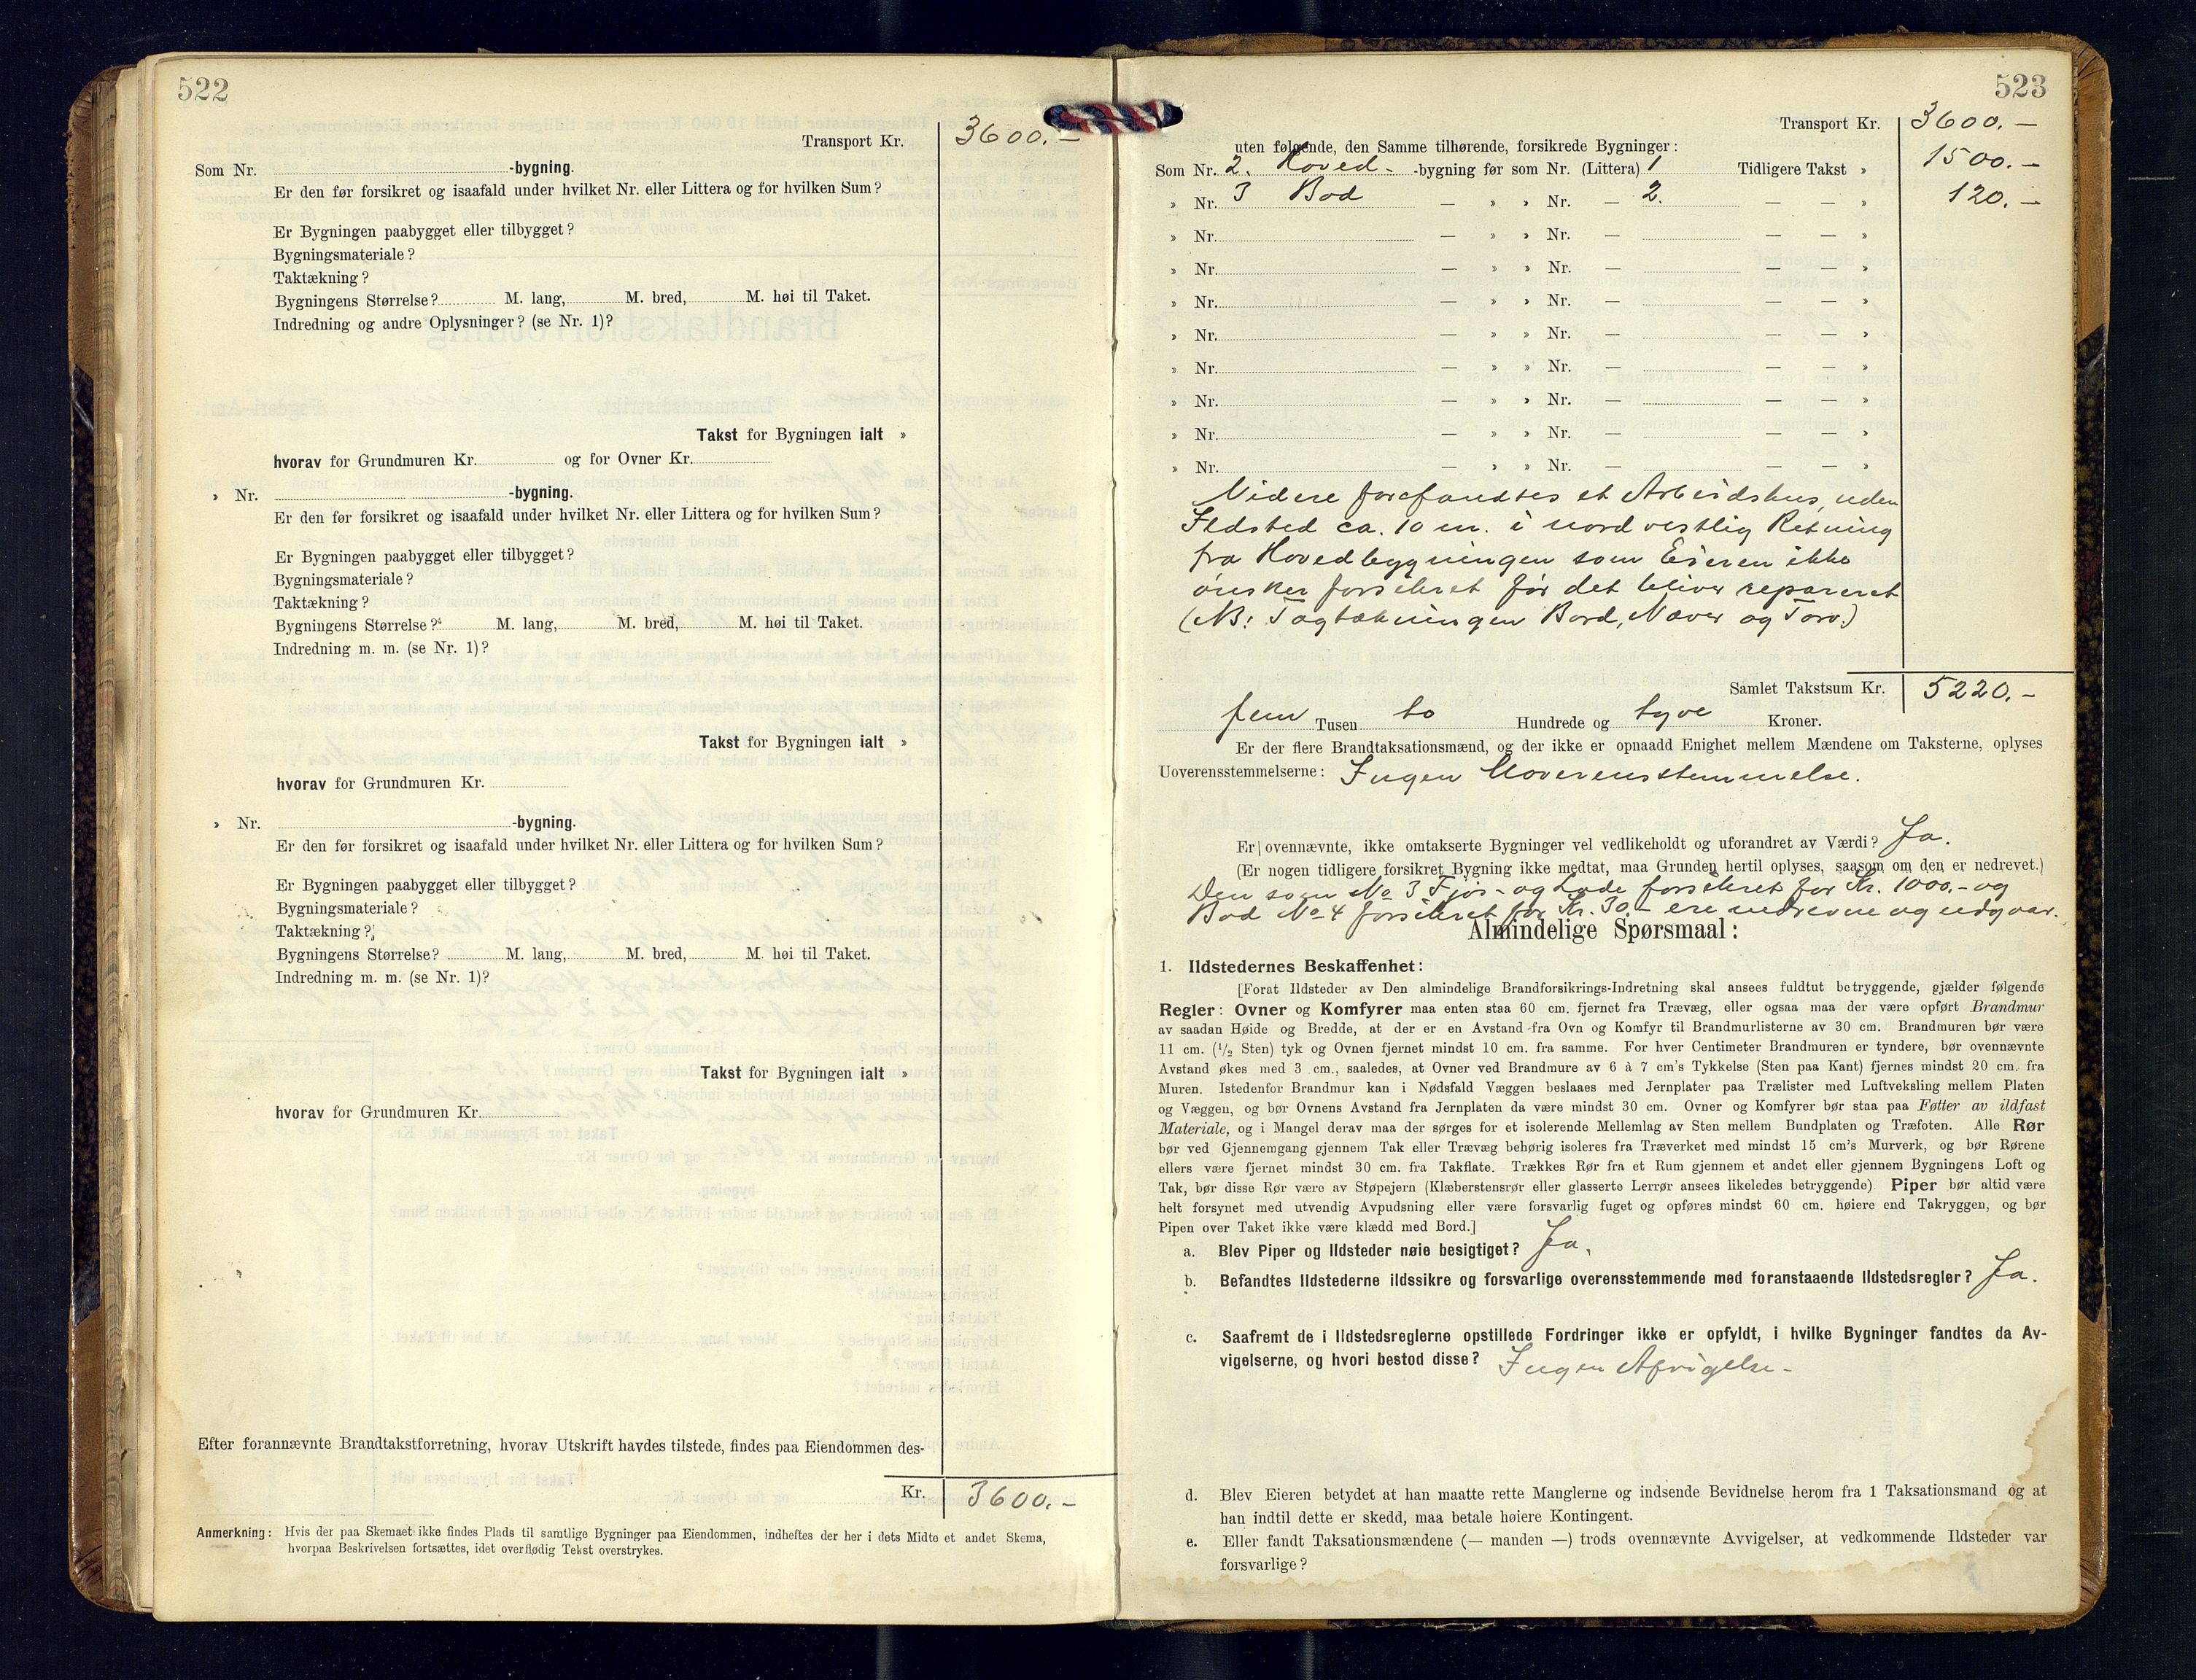 522
Transport Kr. 3600.-
Som Nr. -bygning.
Er den før forsikret og isaafald under hvilket Nr. eller Littera og for hvilken Sum?
Er Bygningen paabygget eller tilbygget?
Bygningsmateriale?
Taktækning?
Bygningens Størrelse? M. lang, M. bred, M. høi til Taket.
Indredning og andre Oplysninger? (se Nr. 1)?
Takst for Bygningen ialt »
hvorav for Grundmuren Kr. og for Ovner Kr.
» Nr. -bygning.
Er den før forsikret og isaafald under hvilket Nr. eller Littera og for hvilken Sum?
Er Bygningen paabygget eller tilbygget?
Bygningsmateriale?
Taktækning?
Bygningens Størrelse? M. lang, M. bred, M. høi til Taket.
Indredning m. m. (se Nr. 1)?
Takst for Bygningen ialt »
hvorav for Grundmuren Kr.
» Nr. -bygning.
Er den før forsikret og isaafald under hvilket Nr. eller Littera og for hvilken Sum?
Er Bygningen paabygget eller tilbygget?
Bygningsmateriale?
Taktækning?
Bygningens Størrelse? M. lang, M. bred, M. høi til Taket.
Indredning m. m. (se Nr. 1)?
Takst for Bygningen ialt »
hvorav for Grundmuren Kr.
Efter forannævnte Brandtakstforretning, hvorav Utskrift havdes tilstede, findes paa Eiendommen des-
Kr. 3600.-
Anmerkning: Hvis der paa Skemaet ikke findes Plads til samtlige Bygninger paa Eiendommen, indheftes der her i dets Midte et andet Skema,
hvorpaa Beskrivelsen fortsættes, idet overflødig Tekst overstrykes.
523
Transport Kr. 3600.-
uten følgende, den Samme tilhørende, forsikrede Bygninger:
Som Nr. 2. Hoved- -bygning før som Nr. (Littera) 1 Tidligere Takst » 1500.-
» Nr. 3 Bod — » » Nr. — 2. — — » 120.-
» Nr. — » » Nr. — — — »
» Nr. — » » Nr. — — — »
» Nr. — » » Nr. — — — »
» Nr. — » » Nr. — — — »
» Nr. — » » Nr. — — — »
» Nr. — » » Nr. — — — »
» Nr. — » » Nr. — — — »
» Nr. — » » Nr. — — — »
Videre forefandtes et Arbeidshus, uden
Ildsted ca. 10 m. i nordvestlig Retning
fra Hovedbygningen som Eieren ikke
ønsker forsikret før det bliver repareret
(NB: Tagtækningen Bord, Næver og Torv.)
Samlet Takstsum Kr. 5220.-
fem Tusen to Hundrede og tyve Kroner.
Er der flere Brandtaksationsmænd, og der ikke er opnaadd Enighet mellem Mændene om Taksterne, oplyses
Uoverensstemmelserne: Ingen Uoverensstemmelse.
Er ovennævnte, ikke omtakserte Bygninger vel vedlikeholdt og uforandret av Værdi? Ja.
(Er nogen tidligere forsikret Bygning ikke medtat, maa Grunden hertil oplyses, saasom om den er nedrevet.)
Den som No 3 Fjøs- og Lade forsikret for Kr. 1000.- og
Bod No 4 forsikret for Kr. 30.- ere nedrevne og udgaar.
Almindelige Spørsmaal:
1. Ildstedernes Beskaffenhet:
[Forat Ildsteder av Den almindelige Brandforsikrings-Indretning skal ansees fuldtut betryggende, gjælder følgende
Regler: Ovner og Komfyrer maa enten staa 60 cm. fjernet fra Trævæg, eller ogsaa maa der være opført Brandmur
av saadan Høide og Bredde, at der er en Avstand fra Ovn og Komfyr til Brandmurlisterne av 30 cm. Brandmuren bør være
11 cm. (1/2 Sten) tyk og Ovnen fjernet mindst 10 cm. fra samme. For hver Centimeter Brandmuren er tyndere, bør ovennævnte
Avstand økes med 3 cm., saaledes, at Ovner ved Brandmure av 6 à 7 cm's Tykkelse (Sten paa Kant) fjernes mindst 20 cm. fra
Muren. Istedenfor Brandmur kan i Nødsfald Væggen beslaaes med Jernplater paa Trælister med Luftveksling mellem Platen
og Væggen, og bør Ovnens Avstand fra Jernplaten da være mindst 30 cm. Ovner og Komfyrer bør staa paa Føtter av ildfast
Materiale, og i Mangel derav maa der sørges for et isolerende Mellemlag av Sten mellem Bundplaten og Træfoten. Alle Rør
bør ved Gjennemgang gjennem Tak eller Trævæg behørig isoleres fra Træverket med mindst 15 cm's Murverk, og bør Rørene
ellers være fjernet mindst 30 cm. fra Takflate. Trækkes Rør fra et Rum gjennem et andet eller gjennem Bygningens Loft og
Tak, bør disse Rør være av Støpejern (Klæberstensrør eller glasserte Lerrør ansees likeledes betryggende) Piper bør altid være
helt forsynet med utvendig Avpudsning eller være forsvarlig fuget og opføres mindst 60 cm. høiere end Takryggen, og bør
Pipen over Taket ikke være klædd med Bord.]
a. Blev Piper og Ildsteder nøie besigtiget? Ja.
b. Befandtes Ildstederne ildssikre og forsvarlige overensstemmende med foranstaaende Ildstedsregler? Ja.
c. Saafremt de i Ildstedsreglerne opstillede Fordringer ikke er opfyldt, i hvilke Bygninger fandtes da Av-
vigelserne, og hvori bestod disse? Ingen Afvigelse-
d. Blev Eieren betydet at han maatte rette Manglerne og indsende Bevidnelse herom fra 1 Taksationsmand og at
han indtil dette er skedd, maa betale høiere Kontingent.
e. Eller fandt Taksationsmændene (— manden —) trods ovennævnte Avvigelser, at vedkommende Ildsteder var
forsvarlige?